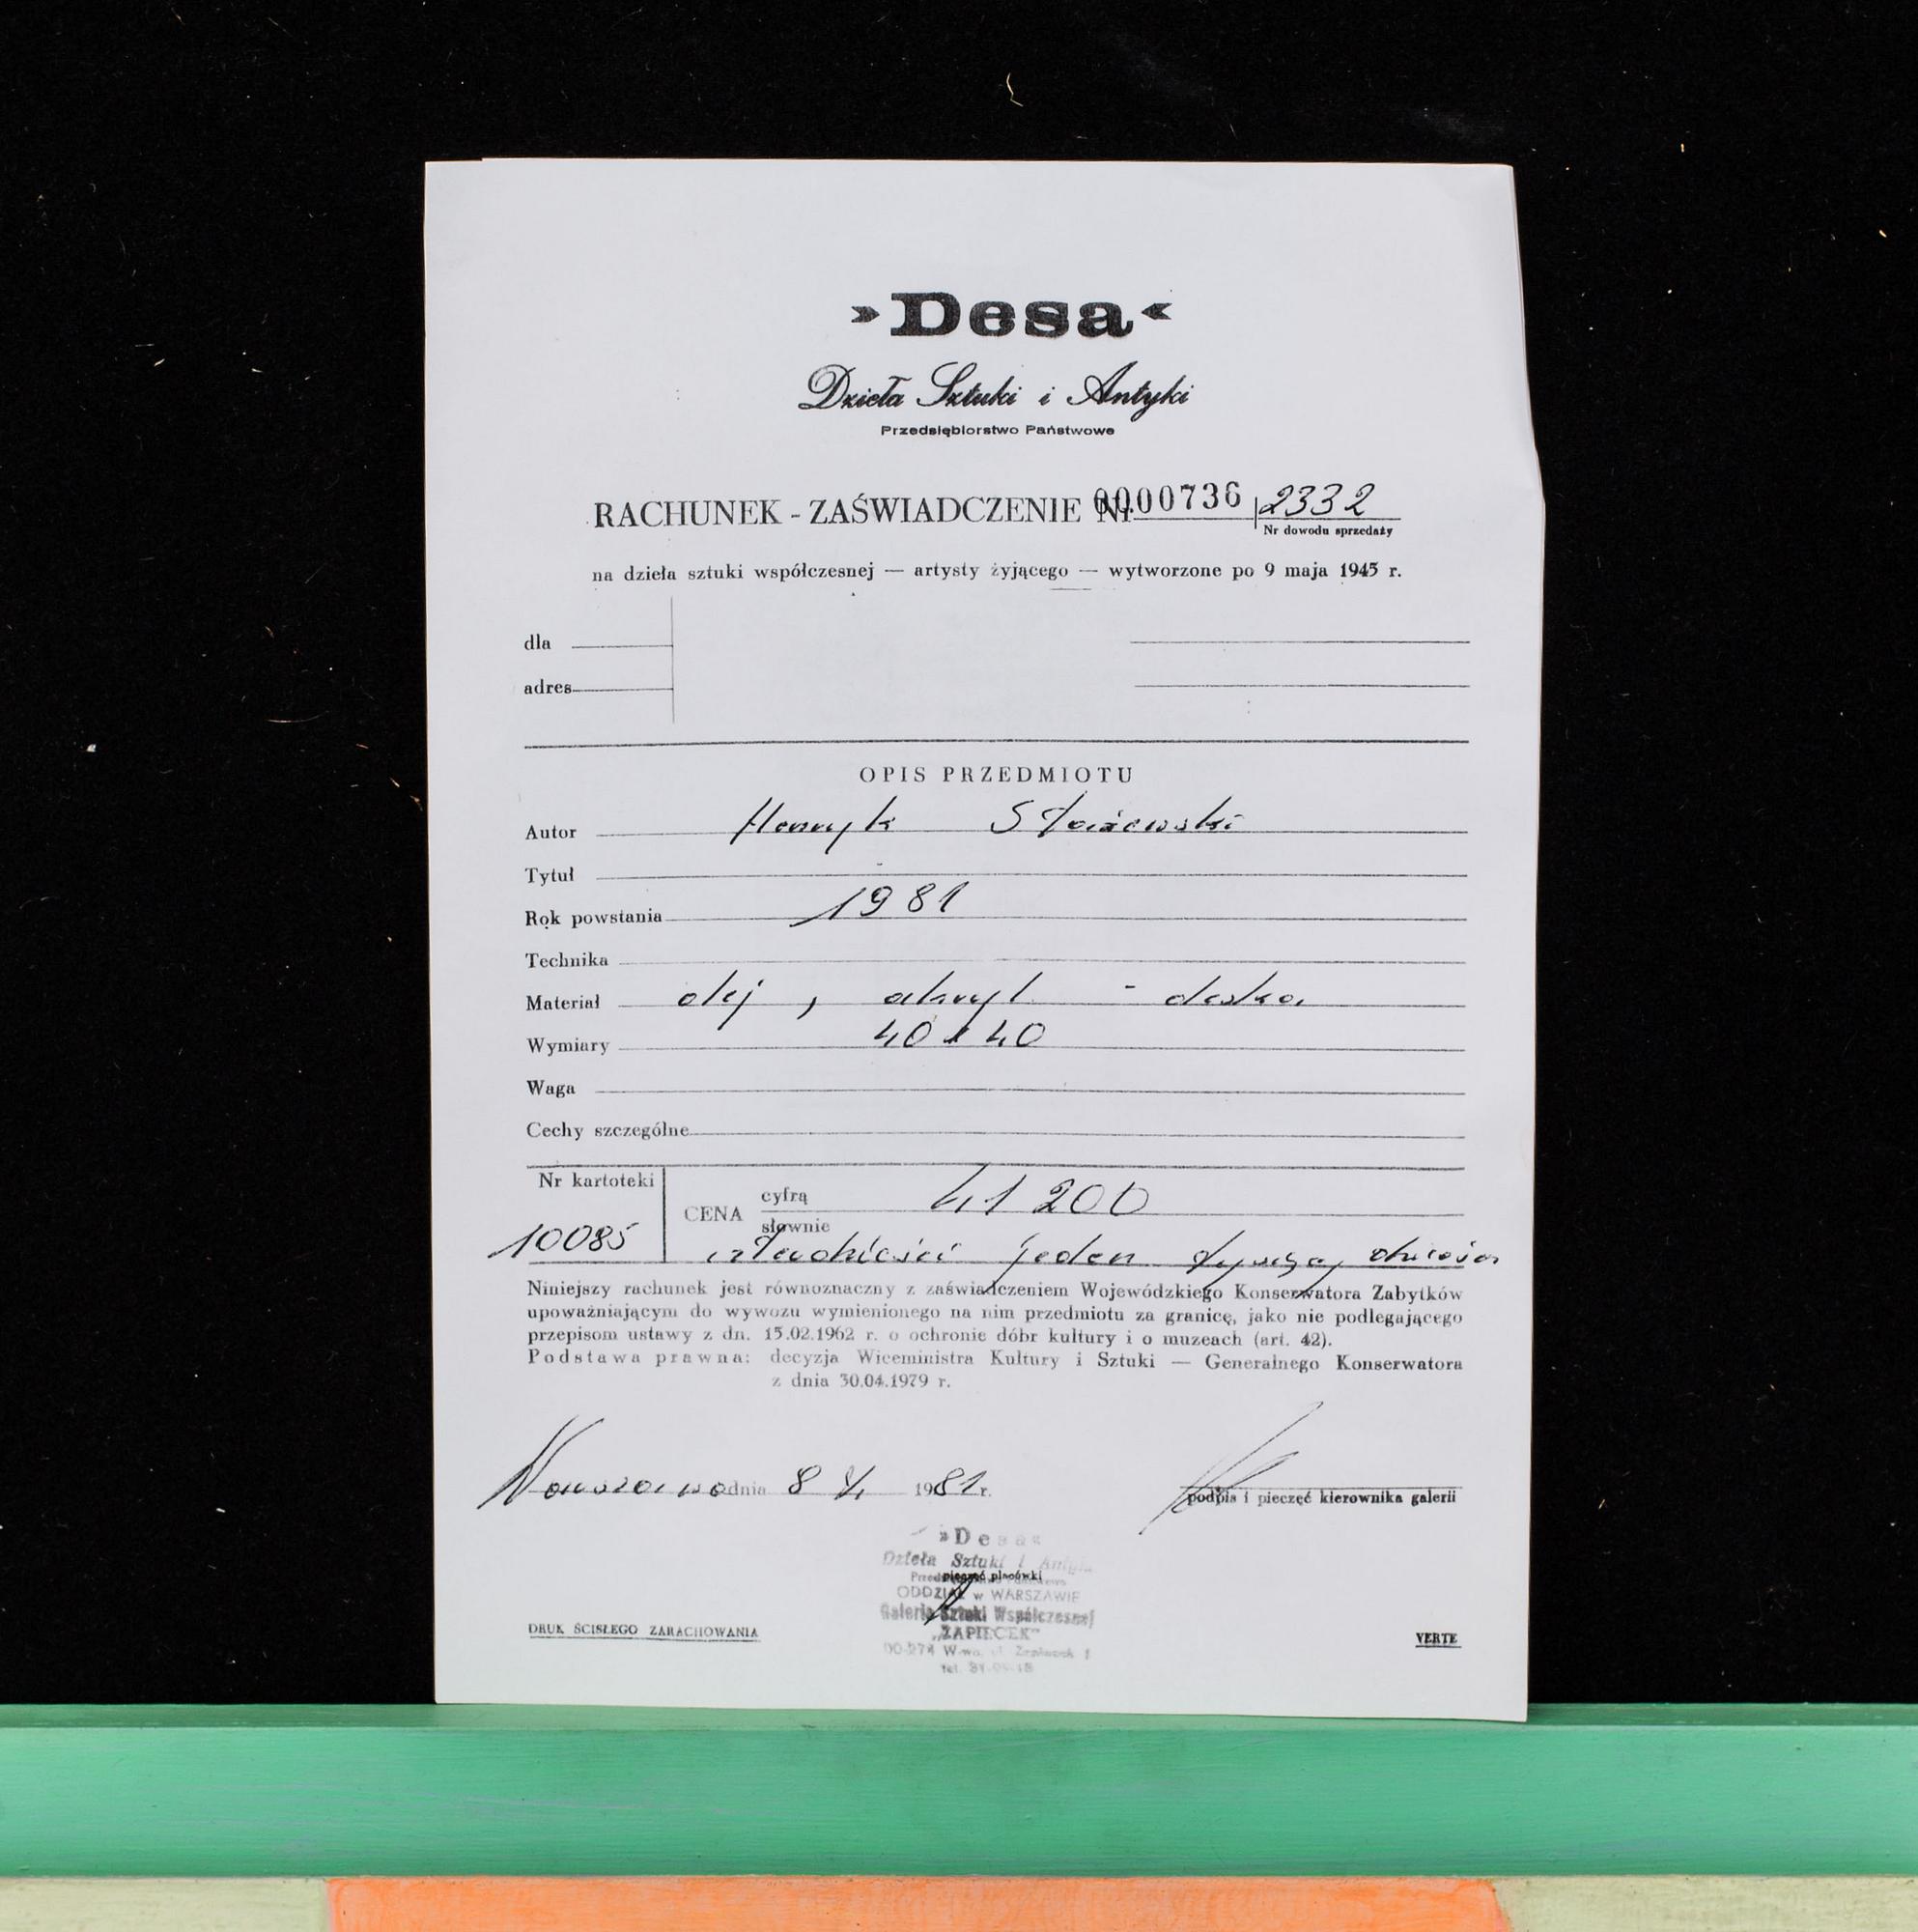 »Desa«
Dzieła Sztuki i Antyki
Przedsiębiorstwo Państwowe
RACHUNEK - ZAŚWIADCZENIE Nr 0000736 2332
Nr dowodu sprzedaży
na dzieła sztuki współczesnej — artysty żyjącego — wytworzone po 9 maja 1945 r.
dla
adres
OPIS PRZEDMIOTU
Autor Henryk Stażewski
Tytuł
Rok powstania 1981
Technika
Materiał olej, akryl - deska
Wymiary 40 x 40
Waga
Cechy szczególne
Nr kartoteki
10085
CENA cyfrą 41 200
słownie
czterdzieści jeden tysięcy dwieście
Niniejszy rachunek jest równoznaczny z zaświadczeniem Wojewódzkiego Konserwatora Zabytków
upoważniającym do wywozu wymienionego na nim przedmiotu za granicę, jako nie podlegającego
przepisom ustawy z dn. 15.02.1962 r. o ochronie dóbr kultury i o muzeach (art. 42).
Podstawa prawna: decyzja Wiceministra Kultury i Sztuki — Generalnego Konserwatora
z dnia 30.04.1979 r.
Warszawa dnia 8 1981 r.
podpis i pieczęć kierownika galerii
»Desa«
Dzieła Sztuki i Antyki
pieczęć placówki
ODDZIAŁ w WARSZAWIE
Galeria Sztuki Współczesnej
„ZAPIECEK"
00-274 W-wa, ul. Zapiecek 1
tel.
DRUK ŚCISŁEGO ZARACHOWANIA
VERTE